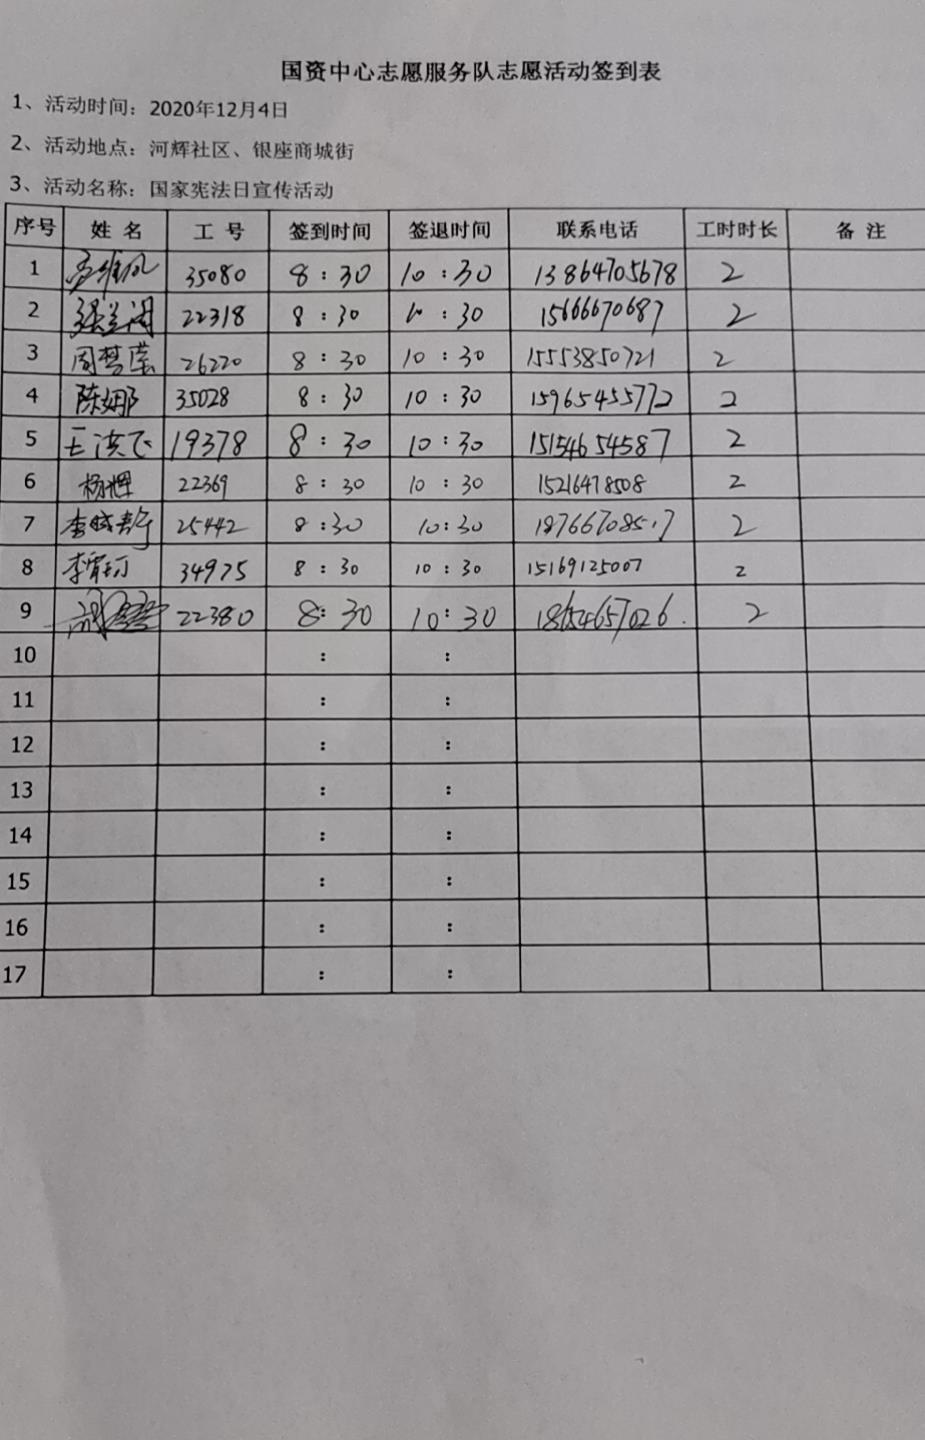 国资中心志愿服务队志愿活动签到表
1、活动时间：2020年12月4日
2、活动地点：河辉社区、银座商城街
3、活动名称：国家宪法日宣传活动
序号 姓 名 工 号 签到时间 签退时间 联系电话 工时时长 备 注
1 35080 8：30 10：30 13864705678 2
2 张兰阁 22318 8：30 10：30 15666670687 2
3 周梦莹 26220 8：30 10：30 15553850721 2
4 陈娜 35028 8：30 10：30 15965455772 2
5 王洪飞 19378 8：30 10：30 15154654587 2
6 杨辉 22369 8：30 10：30 15216478508 2
7 25442 8：30 10：30 2
8 34975 8：30 10：30 15169125007 2
9 22380 8：30 10：30 18654657026. 2
10 ： ：
11 ： ：
12 ： ：
13 ： ：
14 ： ：
15 ： ：
16 ： ：
17 ： ：